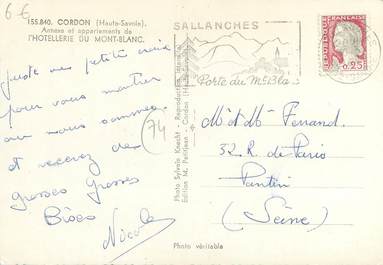 6 €
155.840. CORDON (Haute-Savoie).
Annexe et appartements de
l'HOTELLERIE DU MONT-BLANC.
SALLANCHES
Porte du Mt Blanc
RÉPUBLIQUE FRANÇAISE
0,25
Juste une petite croix
pour vous montrer
où nous sommes
et recevez de
grosses grosses
Bises
Nicole
(74)
Photo Sylvain Knecht - Reproduction interdite
Edition M. Pettitjean - Cordon (Haute-Savoie)
Mr et Mme Ferrand.
32. R. de Paris
Pantin
(Seine)
Photo véritable